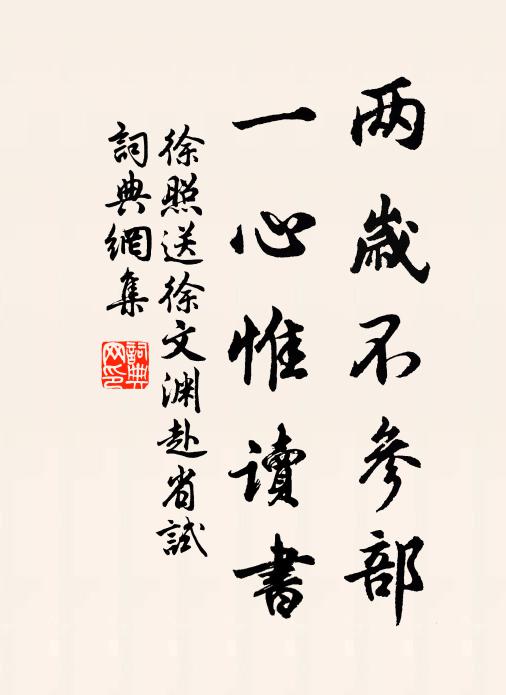 両歳不參部
一心惟讀書
徐照送徐文渊赴省試
詞典網集
詞典网印